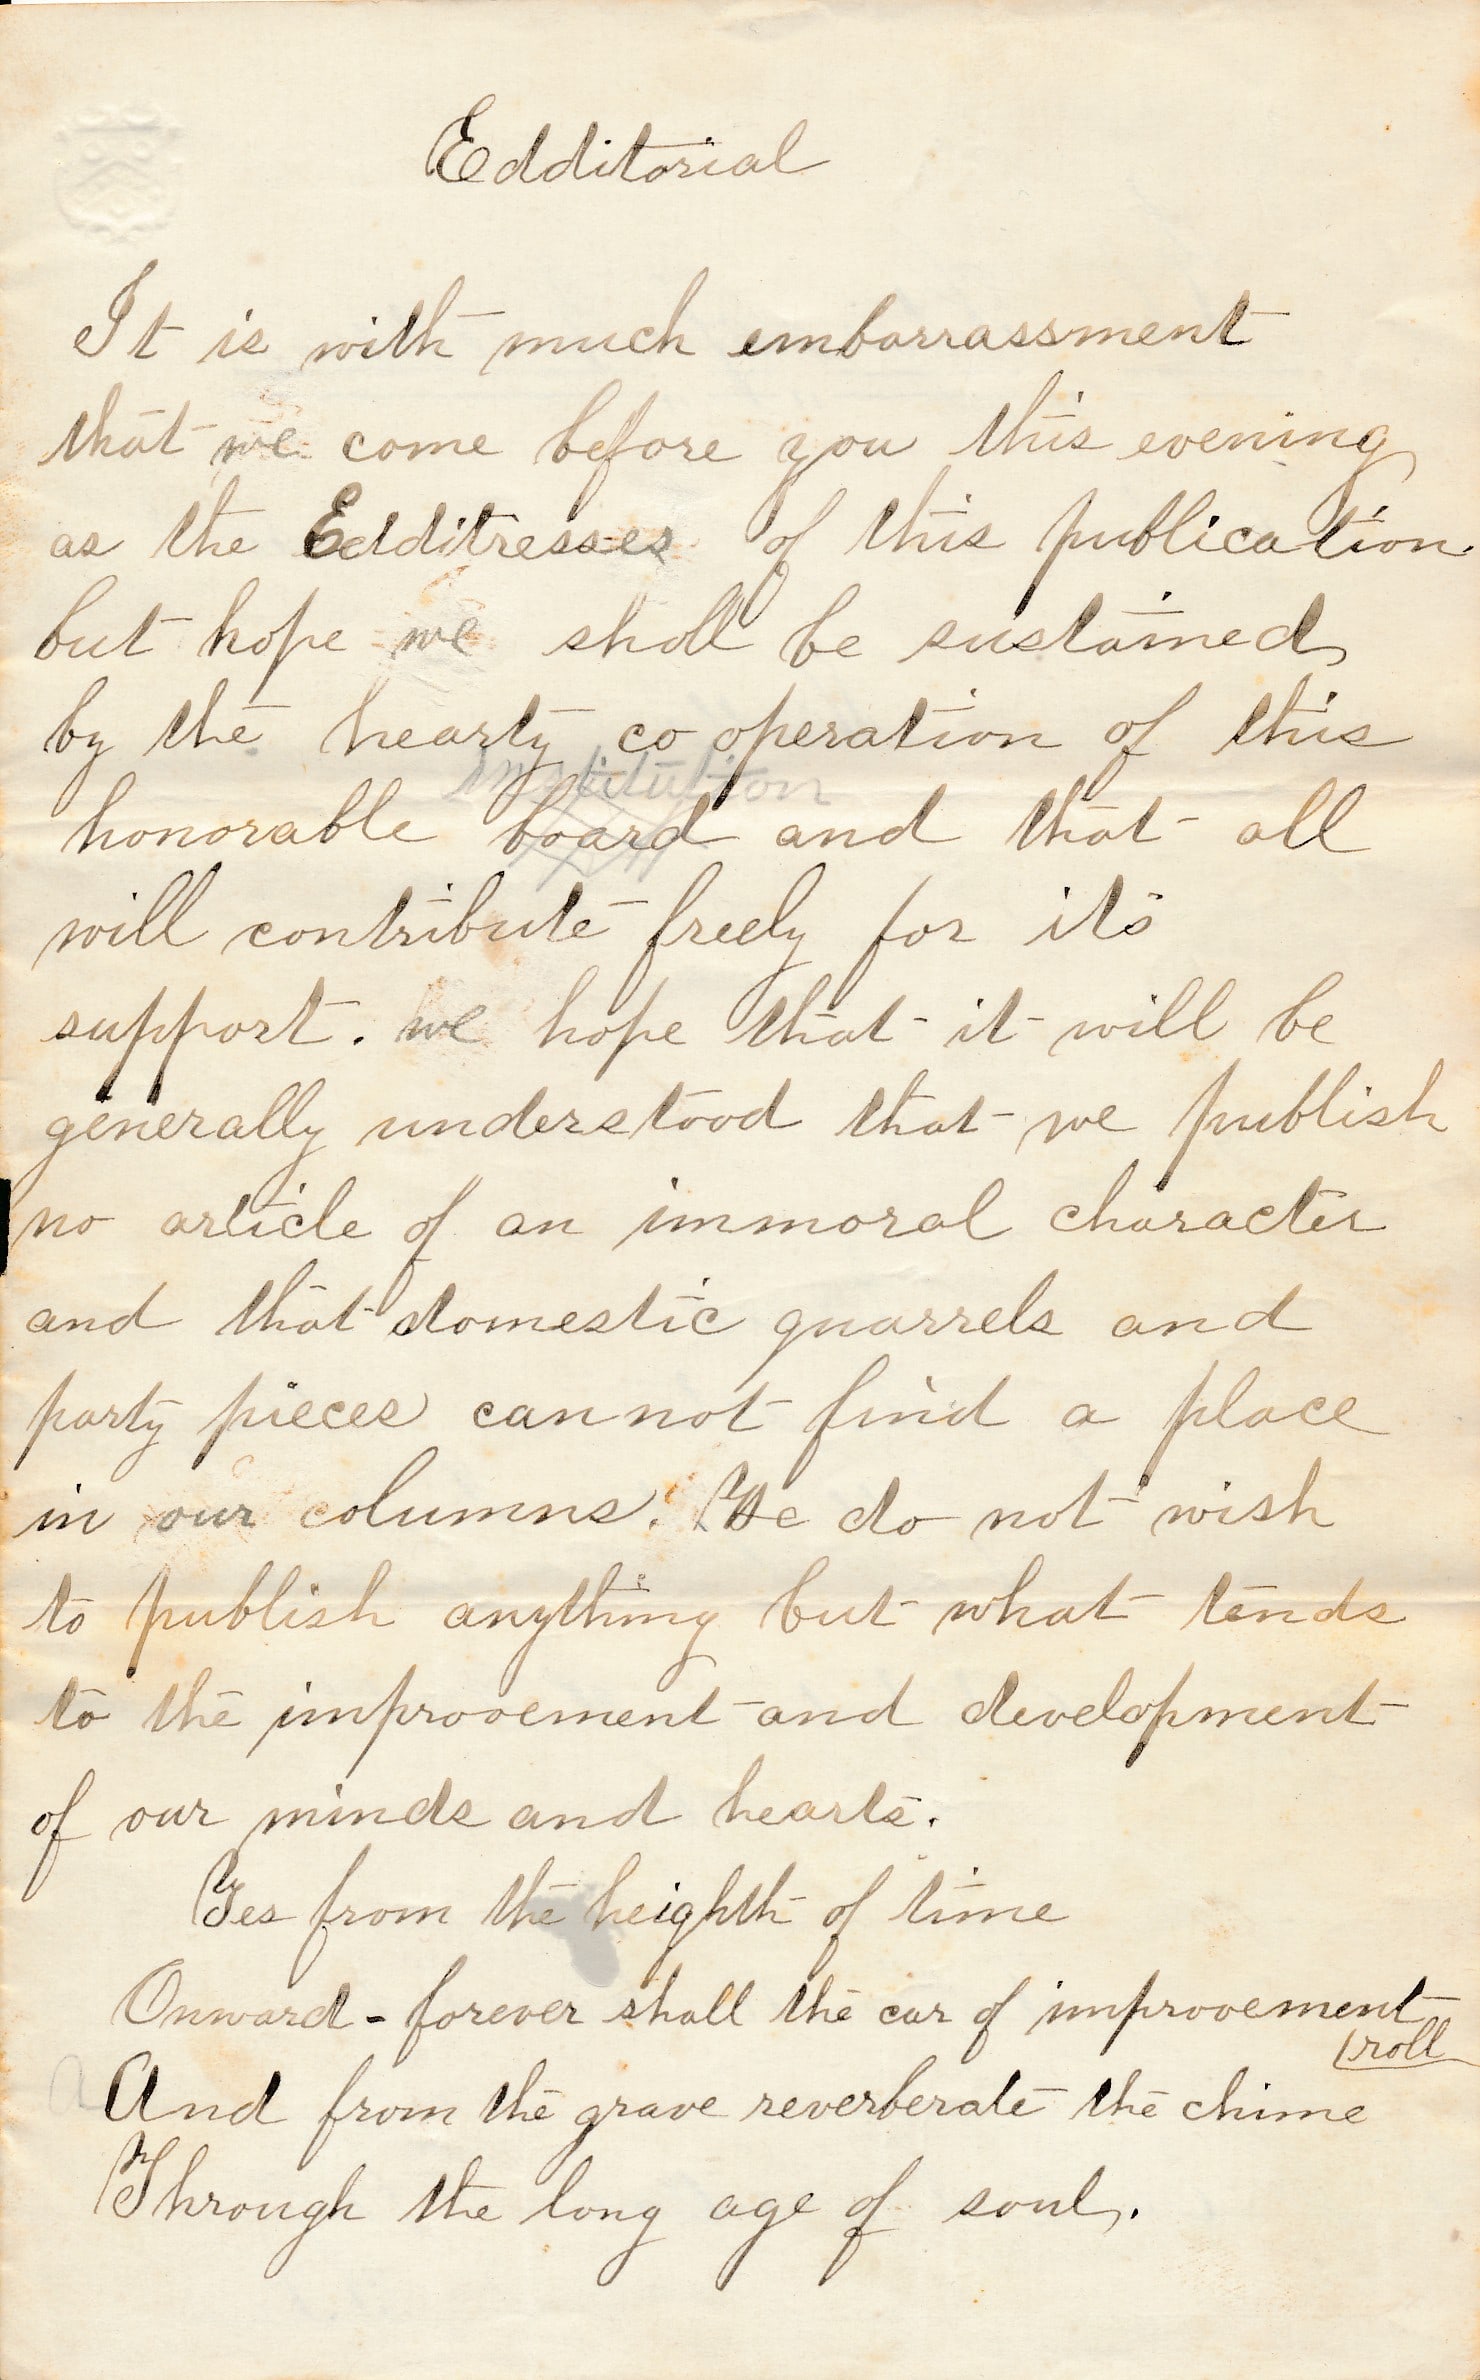 Edditorial
It is with much embarrassment
that we come before you this evening
as the Edditresses of this publication.
but hope we shall be sustained
by the hearty co operation of this
institution
honorable board and that all
will contribute freely for its
support. we hope that it will be
generally understood that we publish
no article of an immoral character
and that domestic quarrels and
party pieces cannot find a place
in our columns. We do not wish
to publish anything but what tends
to the improvement and development
of our minds and hearts.
Yes from the heighth of time
Onward - forever shall the car of improvement
roll
And from the grave reverberate the chime
Through the long age of soul.